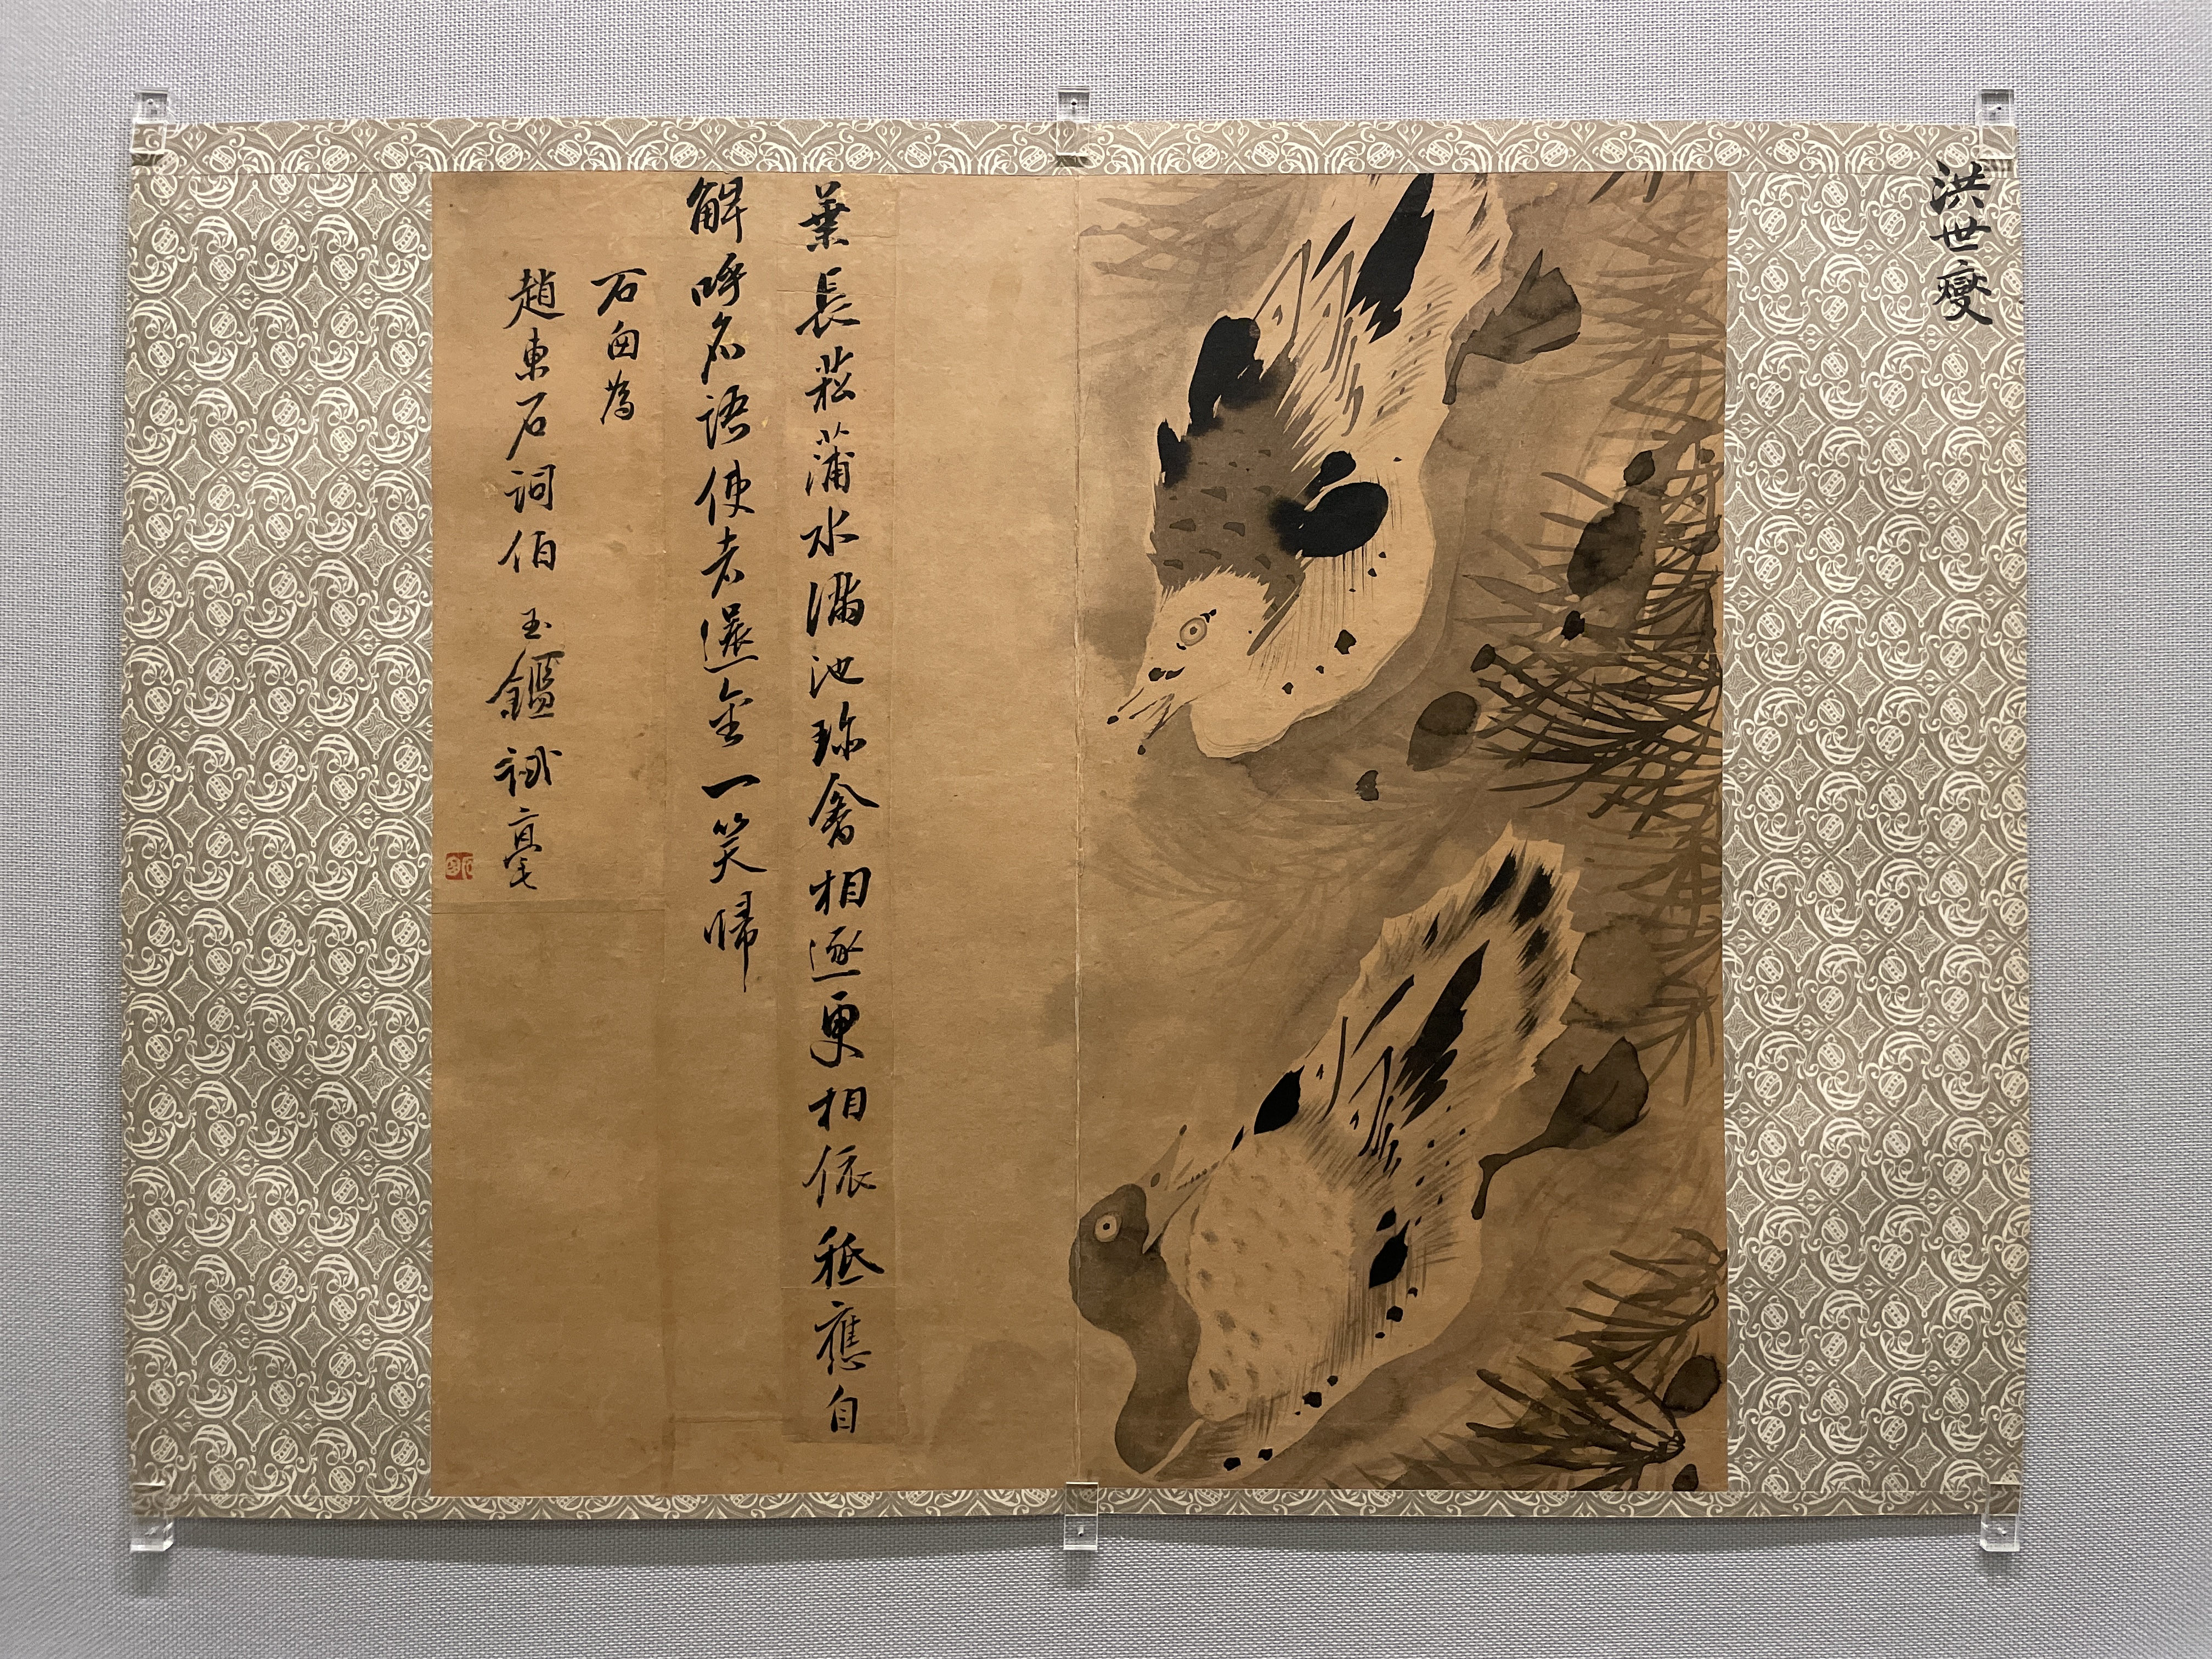 洪世燮
葉長菰蒲水滿池珎禽相逐更相依秪應自
解呼名語使者選金一笑歸
石囱為
趙東石詞伯 玉鑑 試毫